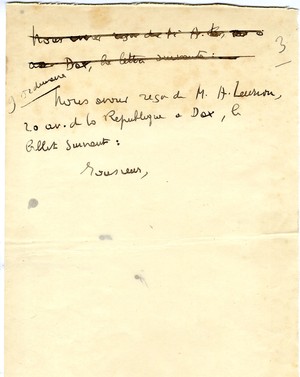 Nous avons reçu de Mr A.
Dax, la lettre suivante :
3
Nous avons reçu de M. A.
20 av. de la République à Dax, le
billet suivant :
Monsieur,